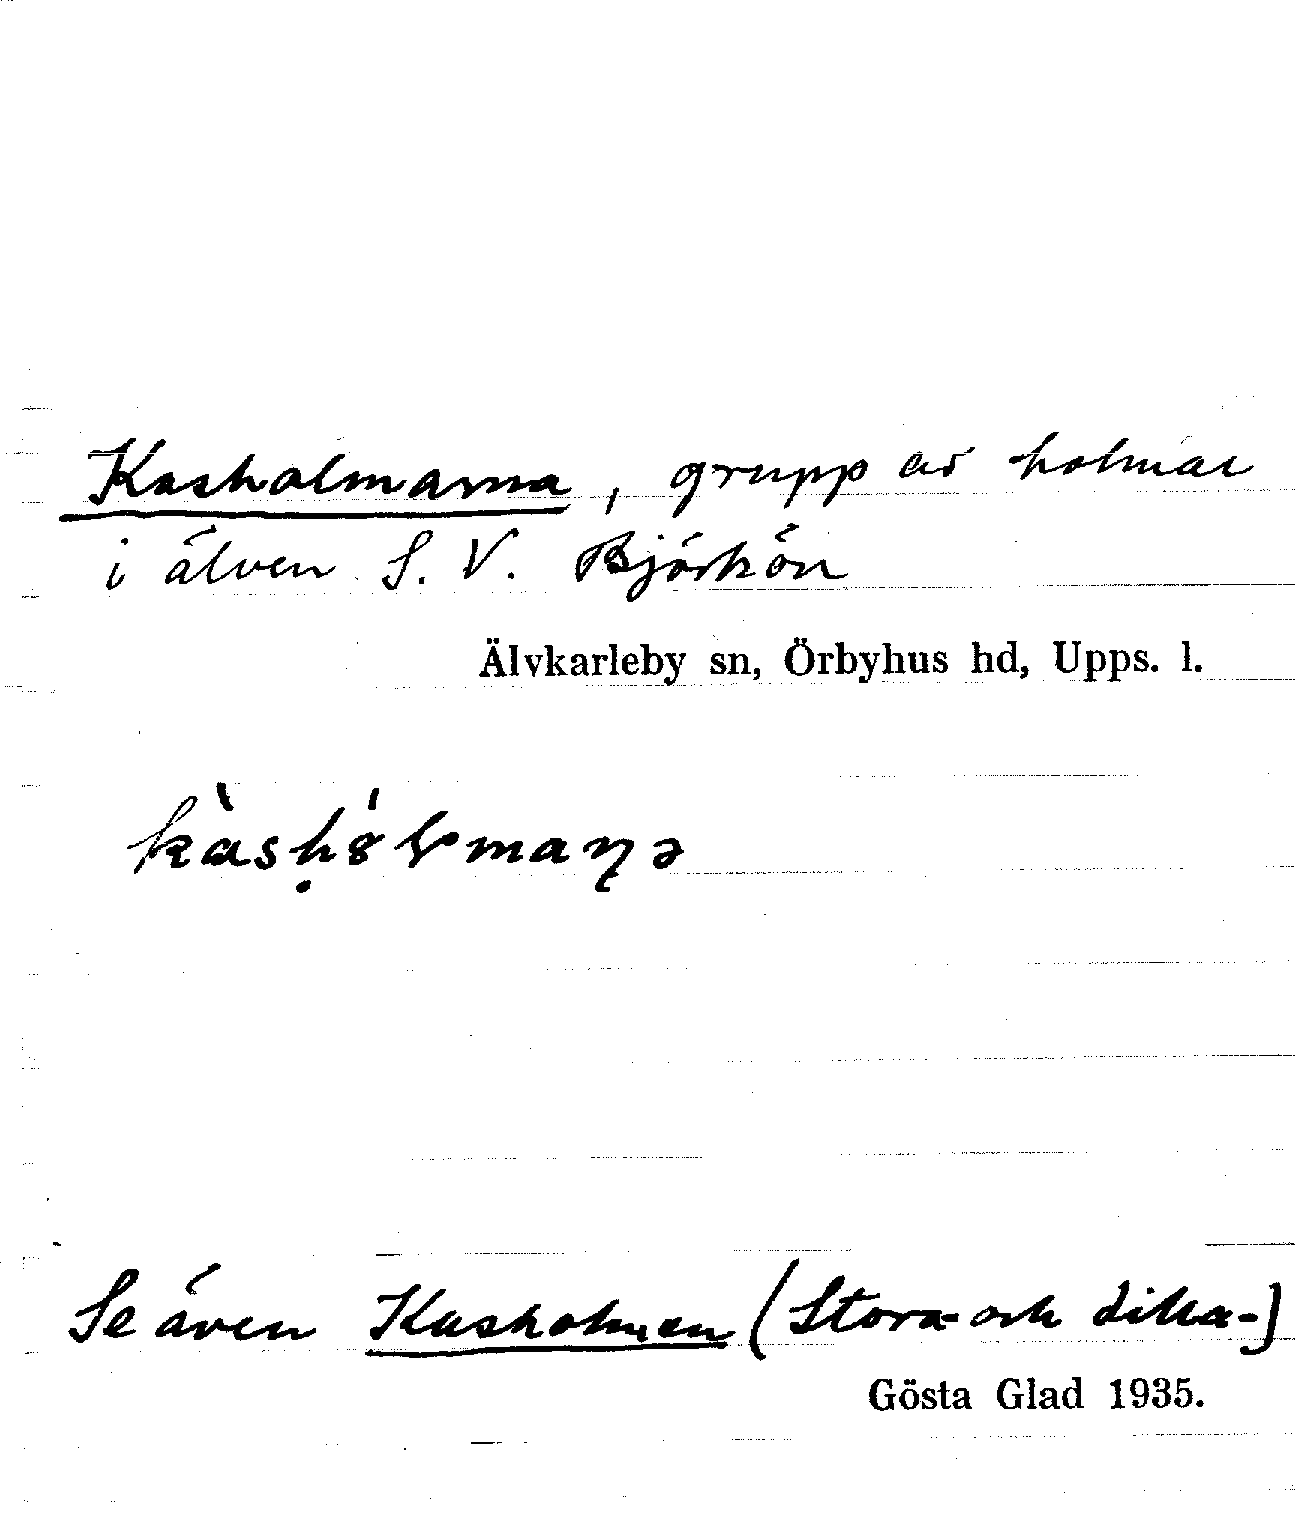 Kasholmarna, grupp av holmar
i älven S. V. Björkön
Älvkarleby sn, Örbyhus hd, Upps. l.
Se även Kasholmen (Stora- och Lilla-)
Gösta Glad 1935.